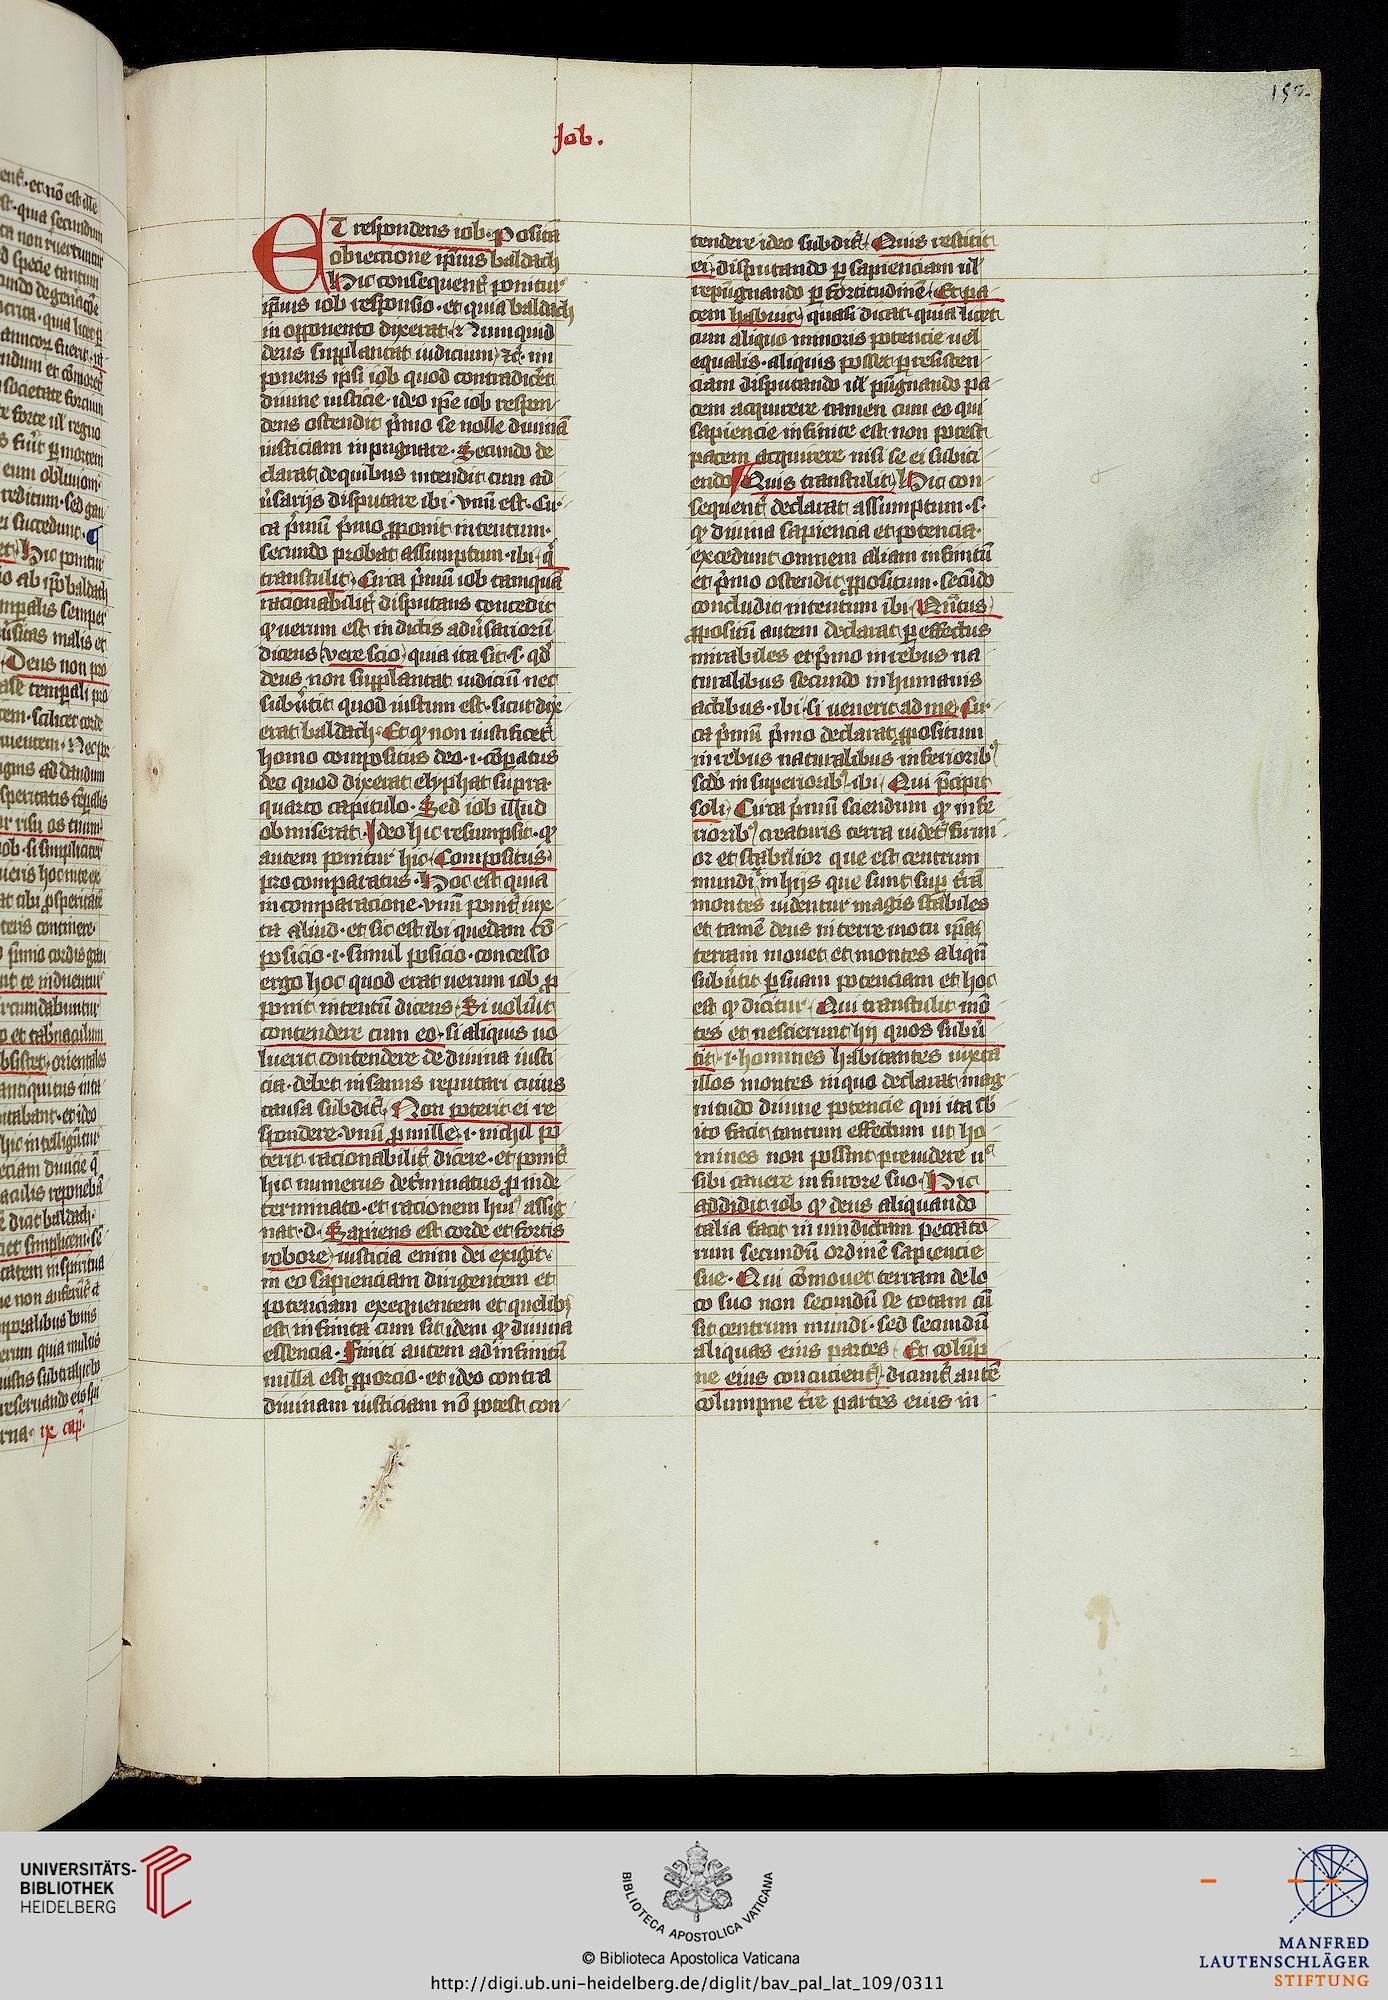 152.
Job.
ET respondens iob. Posita
obieccione ip̄ius baldach
Hic consequent̄ ponitur
ip̄ius iob responsio. et quia baldach
in opponento dixerat. Nunquid
deus supplantat iudicium. ⁊c̄. im
ponens ipsi iob quod contradic̄et
diuine iusticie. ideo ip̄e iob respon
dens ostendit p̄mo se nolle diuinā
iusticiam inpugnare. Secundo de
clarat de quibus intendit cum ad
ūsarijs disputare ibi. vnū est. Cir
ca p̄mū p̄mo p̱ponit intentum.
secundo probat assumptum. ibi. q̄
transtulit. Circa p̄mū iob tamquā
racionabilit̄ disputans concedit
ꝙ uerum est in dictis adūsariorū
dicens (vere scio) quia ita sit. s. qd̄
deus non supplantat iudiciū nec
subūtit quod iustum est. sicut dix̄
erat baldach. Et ꝙ non iustificet̄
homo compositus deo. i. cōp̄atus
deo quod dixerat elyphat supra.
quarto capitulo. Sed iob illud
obmiserat. Ideo hic resumpsit. ꝙ
autem ponitur hic. Compositus.
pro comparatus. Hoc est quia
in comparacione. vnū ponit̄ iux
ta aliud. et sic est ibi quedam cō
posicio. i. simul posicio. concesso
ergo hoc quod erat uerum iob p̱
ponit intentū dicens. Si uolūit
contendere cum eo. si aliquis uo
luerit contendere de diuina iusti
cia. debet insanus reputari cuius
causa subdit̄. Non poterit ei re
spondere. vnū p̱ mille. i. nichil po
terit racionabilit̄ dicere. et ponit̄
hic numerus det̄minatus p̱ inde
terminato. et racionem huiꝰ assig
nat. d. Sapiens est corde et fortis
robore) iusticia enim dei exigit.
in eo sapienciam dirigentem et
potenciam exequentem et quelibꝫ
est infinita cum sit idem ꝙ diuina
essencia. Finiti autem ad infinitū
nulla est p̱porcio. et ideo contra
diuinam iusticiam nō potest con
tendere ideo subdit̄. Quis restitit
ei) disputando p̱ sapienciam ul̄
repugnando p̱ fortitudinē. Et pa
cem habuit) quasi dicat. quia licet
cum aliquo minoris potencie uel
equalis. aliquis posset p̱ resisten
ciam disputando ul̄ pugnando pa
cem acquirere tamen cum eo qui
sapiencie infinite est non potest
pacem acquirere nisi se ei subici
endo. Quis transtulit) Hic con
sequent̄ declarat assumptum. s.
ꝙ diuina sapiencia et potencia.
excedunt omnem aliam infinitū
et p̄mo ostendit p̱positum. secūdo
concludit intentum ibi. Quātus)
p̱positū autem declarat p̱ effectus
mirabiles et p̄mo in rebus na
turalibus secundo in humanis
actibus. ibi. si uenerit ad me. Cir
ca p̄mū p̄mo declarat p̱positum
in rebus naturalibus inferioribꝰ
scd̄o in superioribꝰ. ibi. Qui p̄cipit
soli. Circa p̄mū sciendum ꝙ infe
rioribꝰ creaturis terra uidet̄ firmi
or et stabilior que est centrum
mundi in hijs que sunt sup̱ t̄rā
montes uidentur magis stabiles
et tamē deus in terre motu ip̄aꝫ
terram mouet et montes aliqn̄
subūtit p̱ suam potenciam et hoc
est ꝙ dicitur. Qui transtulit mō
tes et nescierunt hij quos subū
tit. i. homines habitantes iuxta
illos montes in quo declarat̄ mag
nitudo diuine potencie qui ita sb̄
ito facit tantum effectum ut ho
mines non possint preuidere n̄
sibi cauere in furore suo. Hic
addidit iob ꝙ deus aliquando
talia facit in uindictam peccato
rum secundū ordinē sapiencie
sue. Qui cōmouet terram de lo
co suo non secundū se totam cū
sit centrum mundi. sed secundū
aliquas eius partes. Et colūp
ne eius concucient̄). dicunt̄ autē
columpne t̄re partes eius in
UNIVERSITÄTS-
BIBLIOTHEK
HEIDELBERG
BIBLIOTECA APOSTOLICA VATICANA
© Biblioteca Apostolica Vaticana
http://digi.ub.uni-heidelberg.de/diglit/bav_pal_lat_109/0311
MANFRED
LAUTENSCHLÄGER
STIFTUNG